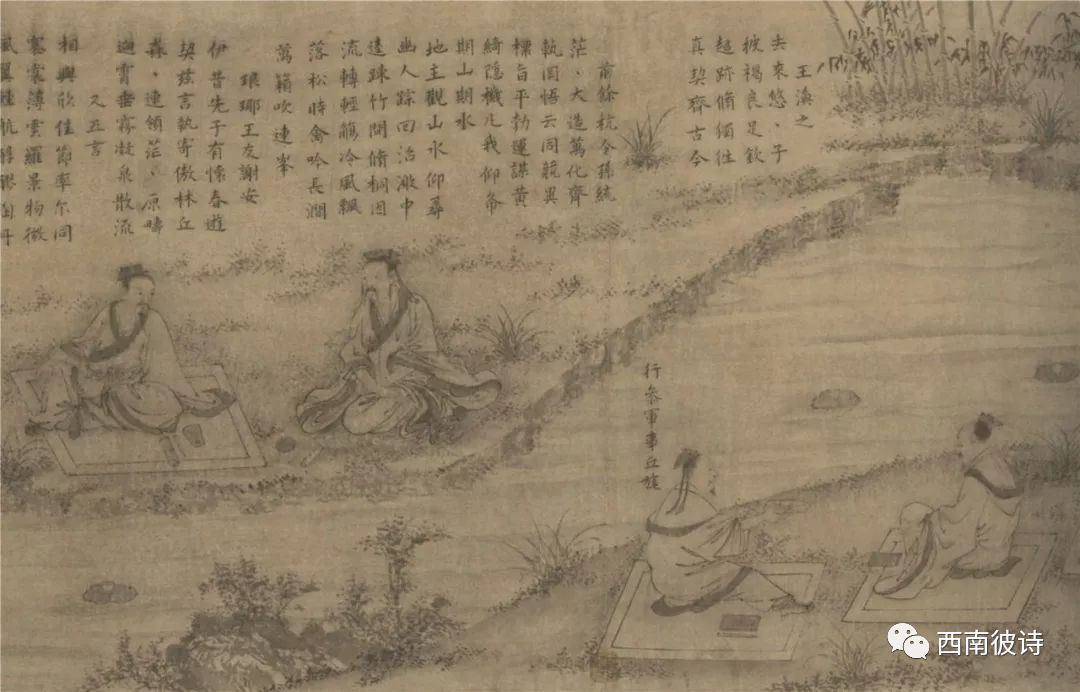 王渙之
去來悠、子
被褐良足欽
超跡脩獨往
真契齊古今
前餘杭令孫統
茫、大造萬化齊
軌罔悟云同競異
標旨平勃運謀黃
綺隱機凡我仰希
期山期水
地主觀山水仰尋
幽人踪回沼激中
逵踈竹間脩桐因
流轉輕觴冷風飄
落松時禽吟長澗
萬籟吹連峯
琅琊王友謝安
伊昔先子有懷春遊
契茲言執寄傲林丘
森、連領茫、原疇
逈霄垂霧凝泉散流
又五言
相與欣佳節率尔同
褰裳薄雲羅景物微
行叅軍事丘旄
西南彼诗